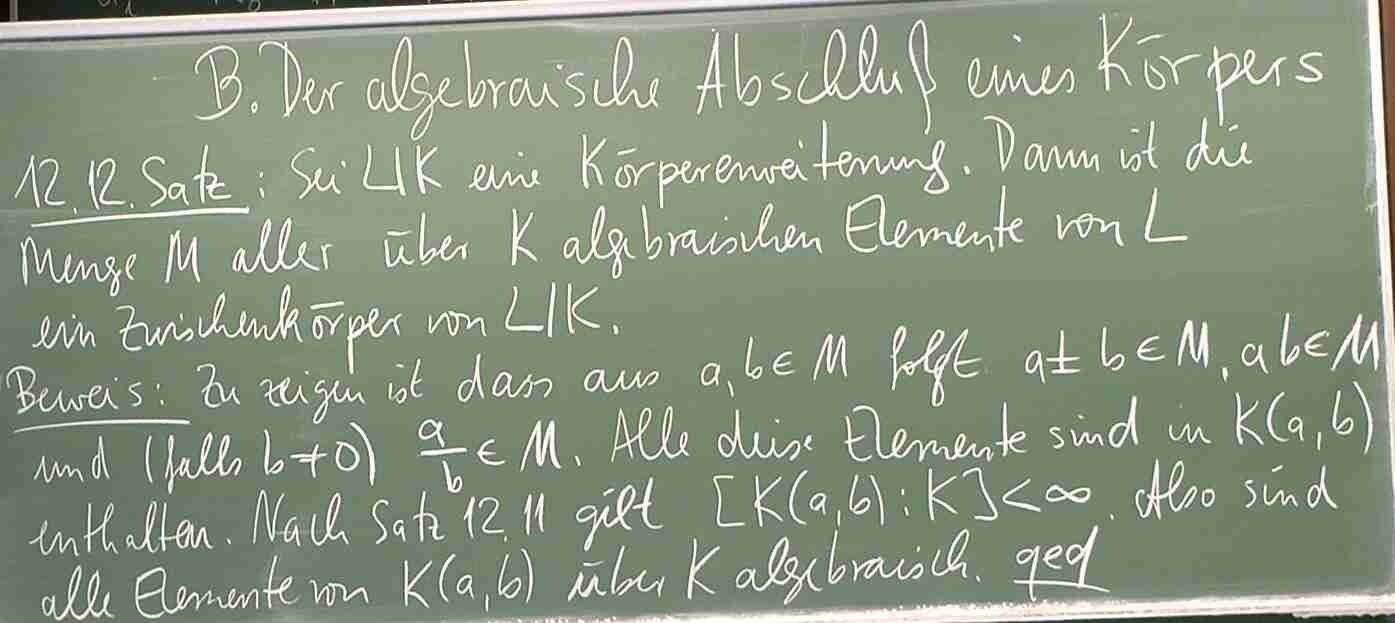 B. Der algebraische Abschluß eines Körpers
12.12. Satz: Sei L|K eine Körpererweiterung. Dann ist die
Menge M aller über K algebraischen Elemente von L
ein Zwischenkörper von L|K.
Beweis: Zu zeigen ist dass aus a, b ∈ M folgt a ± b ∈ M, ab ∈ M
und (falls b ≠ 0) a/b ∈ M. Alle diese Elemente sind in K(a, b)
enthalten. Nach Satz 12.11 gilt [K(a, b) : K] < ∞. Also sind
alle Elemente von K(a, b) über K algebraisch. qed